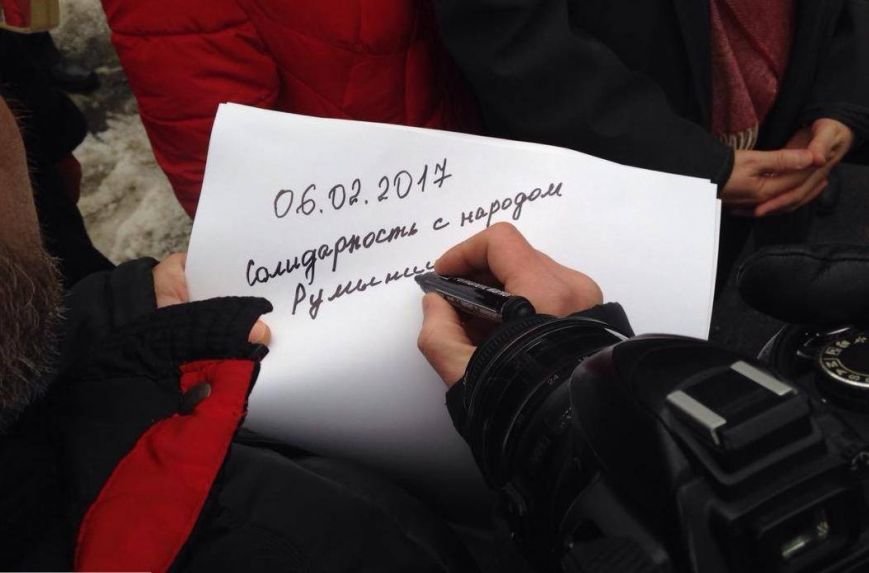 06.02.2017
Солидарность с народом
Румынии